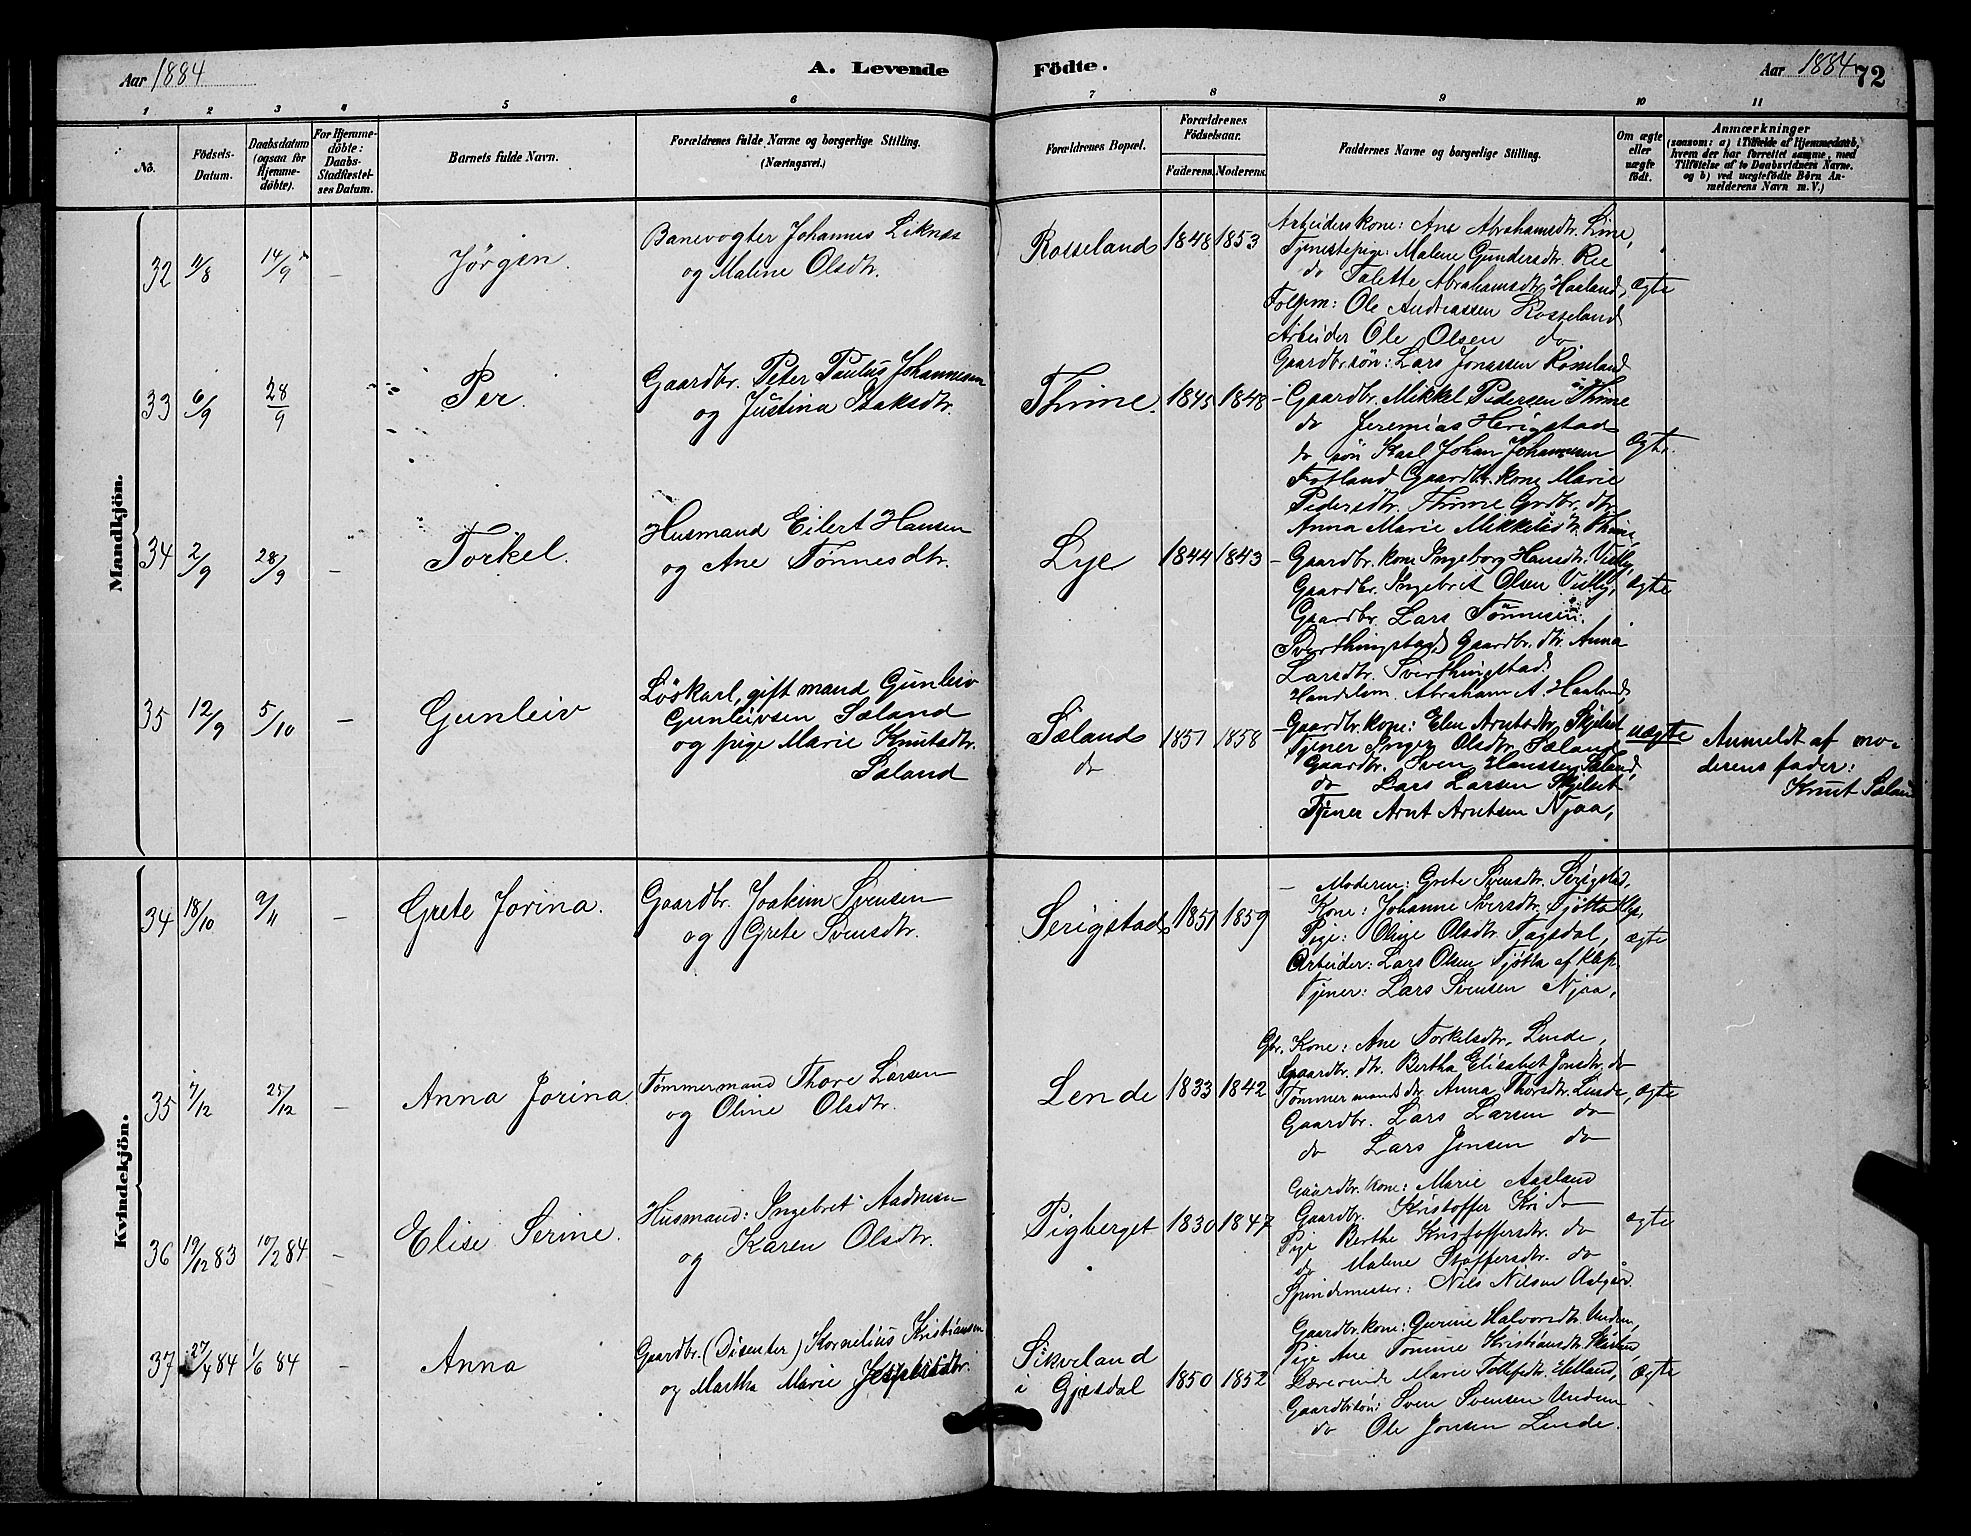 Aar 1884
A. Levende Födte.
Aar 1884
72
1 2 3 4 5 6 7 8 9 10 11
No.
Födsels-Datum.
Daabsdatum (ogsaa for Hjemme-döbte).
For Hjemme-döbte: Daabs-Stadfæstel-ses Datum.
Barnets fulde Navn.
Forældrenes fulde Navne og borgerlige Stilling. (Næringsvei.)
Forældrenes Bopæl.
Forældrenes Födselsaar.
Faderens. Moderens.
Faddernes Navne og borgerlige Stilling.
Om ægte eller uægte födt.
Anmærkninger
(saasom: a) i Tilfælde af Hjemmedaab,
hvem der har forrettet samme, med
Tilföielse af to Daabsvidners Navne.
og b) ved uægtefödte Börn An-
melderens Navn m. V.)
Mandkjön.
32 11/8 14/9 – Jörgen.
Banevogter Johannes Liknæs
og Maline Olsdtr.
Rosseland 1848 1853
Arbeiderskone: Ane Abrahamsdtr. Line,
Tjenestepige: Malene Gundersdtr. Ree
do Talette Abrahamsdtr. Haaland, ægte
Ole Andreassen Rosseland
Arbeider Ole Olsen do
Gaardbr. sön: Lars Jonassen Rosseland
33 6/9 28/9 Per.
Gaardbr. Peter Paulus Johannesen
og Justina Isaksdtr.
Thime. 1845 1848
– Gaardbr. Mikkel Pedersen Thime
do Jeremias Herigstad
do sön Karl Johan Johannesen ægte.
Fotland Gaardbr. kone Marie
Pedersdtr. Thime Grdbr. dtr.
Anna Marie Mikkelsdtr. Thime,
34 2/9 28/9 – Torkel.
Husmand Eilert Hansen
og Ane Tönnesdtr.
Lye 1844 1843
– Gaardbr. kone Ingeborg Hansdtr.
Gaardbr. Ingebrit Olsen ægte
Gaardbr. Lars Tönnesen
Sverthingstad Gaardbr. dtr. Anna
Larsdtr. Sverthingstad.
Handelsm. Abraham A. Haaland,
35 12/9 5/10 – Gunleiv
Löskarl, gift mand Gunleiv
Gunleivsen Sæland
og pige Marie Knutsdtr.
Sæland
Sæland 1851 1858
do
– Gaardbr. kone: Elen Arntsdtr. Skjelset uægte
Tjener Inger Olsdtr. Sæland
Gaardbr. Sven Hanssen Sæland,
do Lars Larsen Skjelset
Tjener Arnt Arntsen Njaa,
Anmeldt af mo-
derens fader:
Knut Sæland
Kvindekjön.
34 18/10 9/11 – Grete Jorina.
Gaardbr. Joakim Svensen
og Grete Svensdtr.
Serigstad 1851 1859
– Moderen: Grete Svensdtr. Serigstad,
Kone: Johanne Iversdtr. Tjötta Klep,
Pige: Oline Olsdtr. Tagsdal, ægte
Arbeider: Lars Olsen Tjötta af Klep.
Tjener: Lars Svensen Njaa,
35 7/12 25/12 – Anna Jorina.
Tömmermand Thore Larsen
og Oline Olsdtr.
Lende 1833 1842
Gbr. Kone: Ane Torkelsdtr. Lende,
Gaardbr. dtr. Bertha Elisabet Jonsdtr. do
Tömmermands dtr. Anna Thorsdtr. Lende, ægte
Gaardbr. Lars Larsen do
do Lars Jensen do
36 19/12 83 10/2 84 – Elise Serine.
Husmand: Ingebret Aadnesen
og Karen Olsdtr.
Pigberget 1830 1847
Gaardbr. kone: Marie Aasland
Gaardbr. Kristoffer do ægte
Pige Berthe Kristoffersdtr. do
do Malene Stoffersdtr. do
Spindemester: Nils Nilsen Aalgård.
37 27/4 84 1/6 84 – Anna
Gaardbr. (Disenter) Kornelius Kristiansen
og Martha Marie Jespersdtr.
Sikveland
i Gjesdal 1850 1852
Gaardbr. kone: Gurine Halvorsdtr. Undem,
Pige Ane Tomine Kristiansdtr.
Lærerinde Marie Tollefsdtr. Hetland, Ægte
Gaardbr. sön: Sven Svensen Undem
do Ole Jonsen Lende.